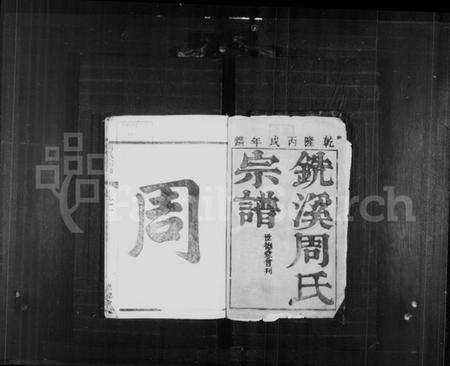 乾隆丙戌年鐫
銚溪周氏
宗譜
周
FamilySearch